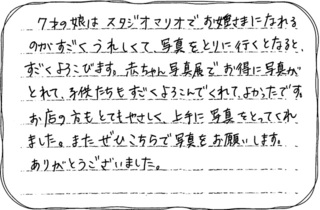 7才の娘は スタジオマリオで お姫さまになれる
のがすごくうれしくて、写真をとりに行くとなると、
すごくよろこびます。赤ちゃん写真展で お得に写真が
とれて、子供たちも すごくよろこんでくれて、よかったです。
お店の方も とてもやさしく、上手に 写真をとってくれ
ました。また ぜひこちらで写真を お願いします。
ありがとうございました。